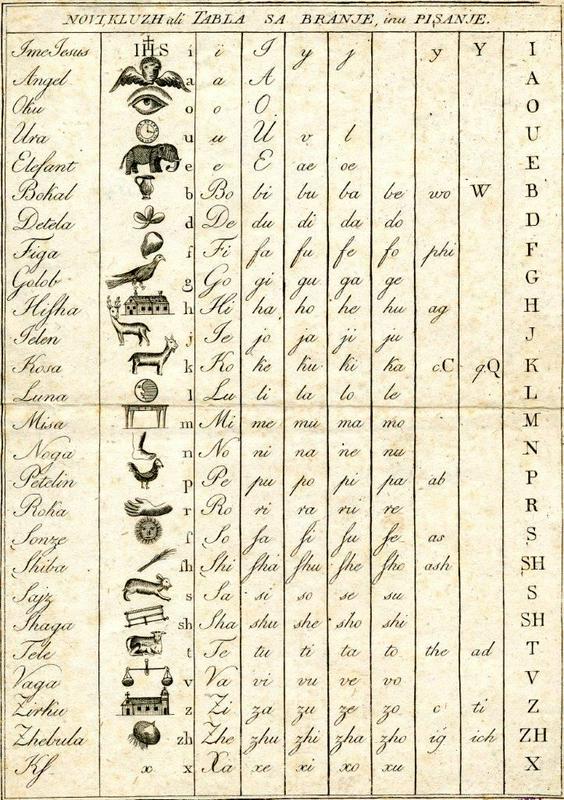 NOVI, KLUZH ali TABLA SA BRANJE, inu PISANJE.
Ime Jesus IHS i i I y j y Y I
Angel a a A A
Oku o o O O
Ura u u U v l U
Elefant e e E ae oe E
Bokal b Bo bi bu ba be wo W B
Detela d De du di da do D
Figa f Fi fa fu fe fo phi F
Golob g Go gi gu ga ge G
Hifha h Hi ha ho he hu ag H
Jelen j Je jo ja ji ju J
Kosa k Ko ke ku ki ka c.C qQ K
Luna l Lu li la lo le L
Misa m Mi me mu ma mo M
Noga n No ni na ne nu N
Petelin p Pe pu po pi pa ab P
Roka r Ro ri ra ru re R
Sonze ſ So ſa ſi ſu ſe as S
Shiba ſh Shi ſha ſhu ſhe ſho ash SH
Sajz s Sa si so se su S
Shaga sh Sha shu she sho shi SH
Tele t Te tu ti ta to the ad T
Vaga v Va vi vu ve vo V
Zirku z Zi za zu ze zo c ti Z
Zhebula zh Zhe zhu zhi zha zho ig ich ZH
Kſ x x Xa xe xi xo xu X